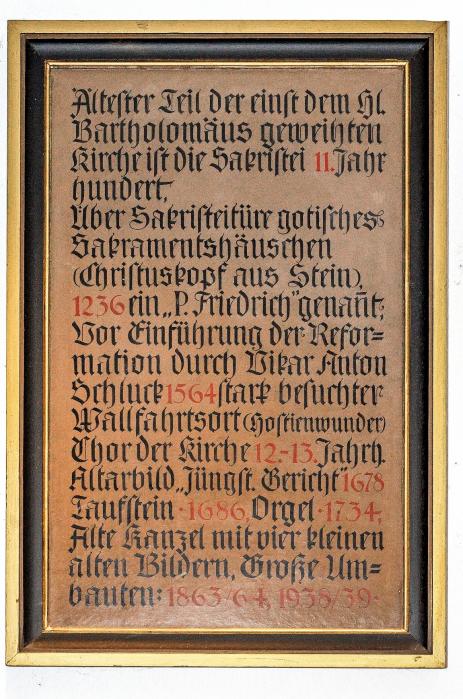 Ältester Teil der einst dem Hl.
Bartholomäus geweihten
Kirche ist die Sakristei 11. Jahr
hundert,
Über Sakristeitüre gotisches
Sakramentshäuschen
(Christuskopf aus Stein),
1236 ein „P. Friedrich" genan̄t;
Vor Einführung der Refor=
mation durch Vikar Anton
Schluck 1564 stark besuchter
Wallfahrtsort (Hostienwunder)
Chor der Kirche 12.-13. Jahrh.
Altarbild „Jüngst. Gericht" 1678
Taufstein · 1686, Orgel · 1734;
Alte Kanzel mit vier kleinen
alten Bildern, Große Um=
bauten: 1863/64, 1938/39·